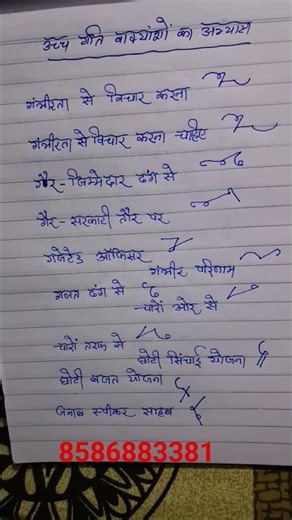 उच्च गति वाक्यांशों का अभ्यास
गंभीरता से विचार करना
गंभीरता से विचार करना चाहिए
गैर-जिम्मेदार ढंग से
गैर-सरकारी तौर पर
गजेटेड ऑफिसर
गंभीर परिणाम
गलत ढंग से
चारों ओर से
चारों तरफ से
छोटी सिंचाई योजना
छोटी बचत योजना
जनाब स्पीकर साहब
8586883381